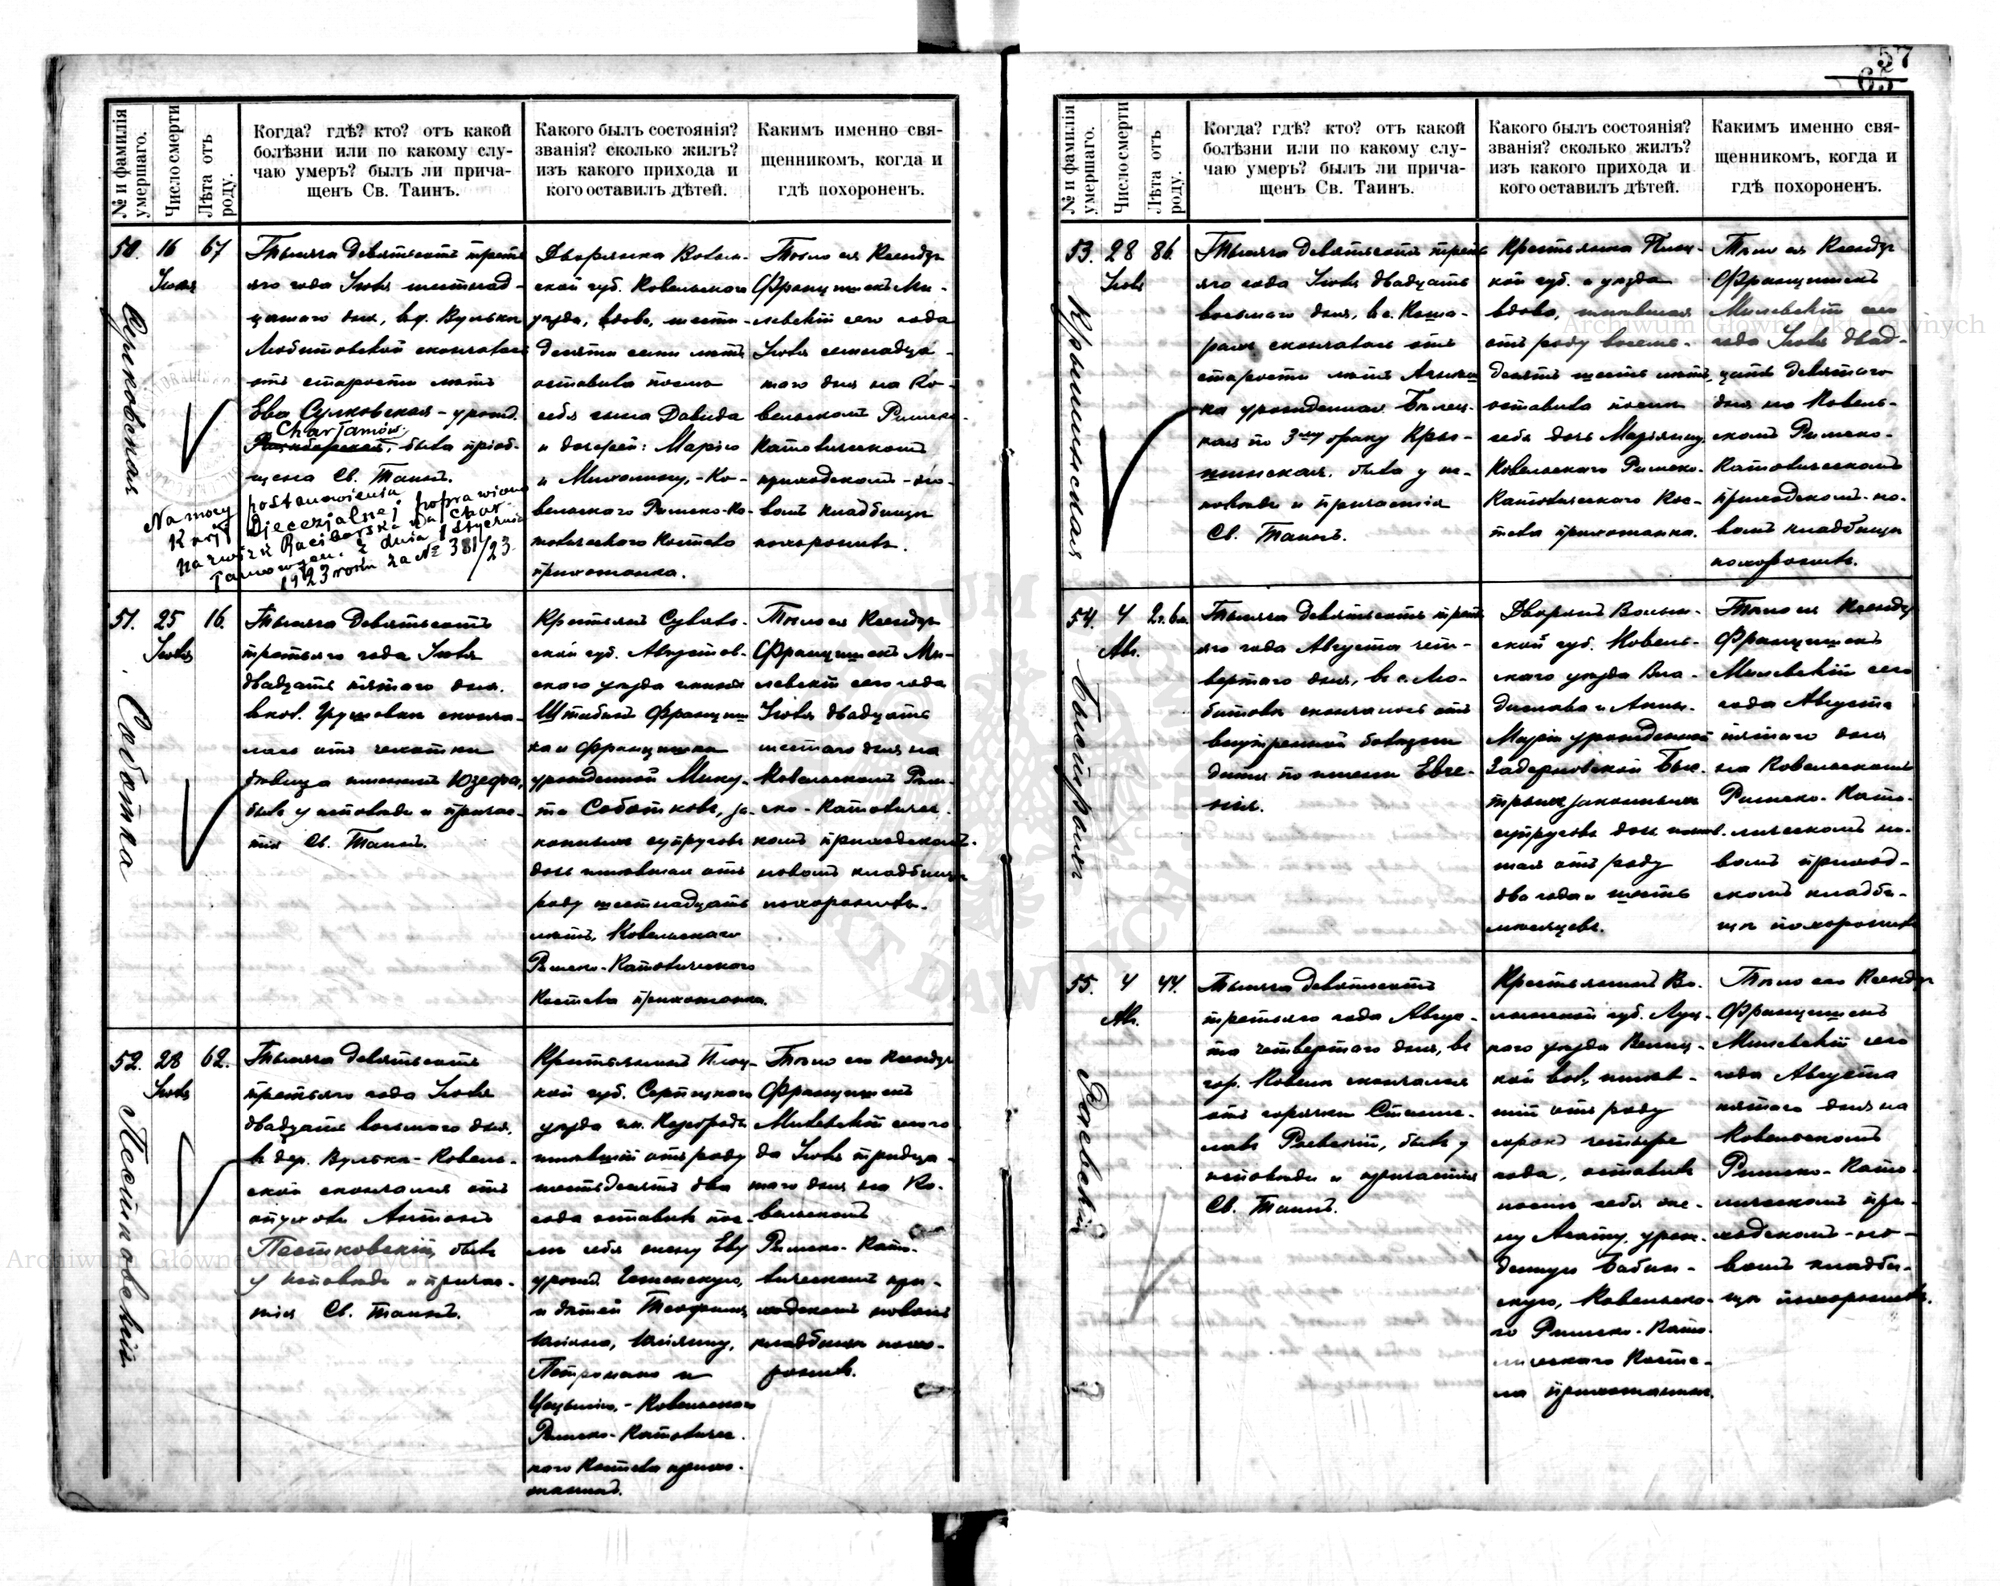 57
65
№ и фамилія умершаго.
Число смерти
Лѣта отъ роду.
Когда? гдѣ? кто? отъ какой
болѣзни или по какому слу-
чаю умеръ? былъ ли прича-
щенъ Св. Таинъ.
Какого былъ состоянія?
званія? сколько жилъ?
изъ какого прихода и
кого оставилъ дѣтей.
Какимъ именно свя-
щенникомъ, когда и
гдѣ похороненъ.
50.
Сулковская
16
Іюля
67
Тысяча Девятьсотъ треть
яго года Іюля шестнад-
цатаго дня, въ Вулькѣ
Любитовской скончалась
отъ старости лѣтъ
Ева Сулковская - урожд.
Charżanów.
была пріоб-
щена Св. Таинъ.
Na mocy postanowienia
Kurji Djecezjalnej poprawiono
nazwisk Raciborska na Char
dnia 1 Stycznia
1923 roku za № 381/23.
Дворянка Волын-
ской губ. Ковельскаго
уѣзда, вдова, шести-
десяти семи лѣтъ
оставила послѣ
себя сына Давида
и дочерей: Марію
и Михалину, - Ко-
вельскаго Римско-Ка-
толическаго Костела
прихожанка.
Тѣло ея Ксендзъ
Францишекъ Ми-
левскій сего года
Іюля семнадца-
таго дня на Ко-
вельскомъ Римско-
Католическомъ
приходскомъ - но-
вомъ кладбищѣ
похоронилъ.
51.
Соботка
25
Іюля
16.
Тысяча Девятьсотъ
третьяго года Іюля
двадцать пятаго дня.
въ кол. Грушовка сконча-
лась отъ чахотки
дѣвица именемъ Юзефа,
былъ у исповѣди и причас-
тія Св. Таинъ.
Крестьянъ Сувалк-
ской губ. Августов-
скаго уѣзда гмины
Штабинъ Францишка
и Францишки
урожденной Мику-
та Соботковъ, за-
конныхъ супруговъ
дочь имѣвшая отъ
роду шестнадцать
лѣтъ, Ковельскаго
Римско-Католическаго
Костела прихожанка.
Тѣло ея Ксендзъ
Францишекъ Ми-
левскій сего года
Іюля двадцать
шестаго дня на
Ковельскомъ Рим-
ско-Католичес-
комъ приходскомъ
новомъ кладбищѣ
похоронилъ.
52.
Пестковскій
28
Іюля
62.
Тысяча Девятьсотъ
третьяго года Іюля
двадцать восьмого дня,
въ дер. Вулька-Ковель-
ской скончался отъ
опухоли Антонъ
Пестковскій, былъ
у исповѣди и причас-
тія Св. Таинъ.
Крестьянинъ Плоц-
кой губ. Серпецкаго
уѣзда гм.
имѣвшій отъ роду
шестьдесятъ два
года оставилъ пос-
лѣ себя жену Еву
урожд.
и дѣтей Теофила
Петронелю и
- Ковельскаго
Римско-Католичес-
каго Костела прихо-
жанинъ.
Тѣло его Ксендзъ
Францишекъ
Милевскій сего го-
да Іюля тридца-
таго дня на Ко-
вельскомъ
Римско-Като-
лическомъ при-
ходскомъ новомъ
кладбищѣ похо-
ронилъ.
№ и фамилія умершаго.
Число смерти
Лѣта отъ роду.
Когда? гдѣ? кто? отъ какой
болѣзни или по какому слу-
чаю умеръ? былъ ли прича-
щенъ Св. Таинъ.
Какого былъ состоянія?
званія? сколько жилъ?
изъ какого прихода и
кого оставилъ дѣтей.
Какимъ именно свя-
щенникомъ, когда и
гдѣ похороненъ.
53.
28
Іюля
86.
Тысяча девятьсотъ треть
яго года Іюля двадцать
восьмого дня, въ с.
скончалась отъ
старости лѣтъ
урожденная
по 3му браку
была у ис-
повѣди и причастія
Св. Таинъ.
Крестьянка Плоц-
кой губ. и уѣзда
вдова, имѣвшая
отъ роду восемь-
десятъ шесть лѣтъ,
оставила послѣ
себя дочь Маріянну
Ковельскаго Римско-
Католическаго Кос-
тела прихожанка.
Тѣло ея Ксендзъ
Францишекъ
Милевскій сего
года Іюля двад-
цать девятаго
дня на Ковель-
скомъ Римско-
Католическомъ
приходскомъ но-
вомъ кладбищѣ
похоронилъ.
54.
Быстрамъ
4
Ав.
2г. 6м.
Тысяча Девятьсотъ треть
яго года Августа чет-
вертаго дня, въ с. Лю-
битовѣ скончалось отъ
внутренной болѣзни
дитя по имени Евге-
нія.
Дворянъ Волын-
ской губ. Ковель-
скаго уѣзда Вла-
дислава и Анны-
Маріи урожденной
Задерновской Быс-
трыхъ законныхъ
супруговъ дочь имѣв-
шая отъ роду
два года и шесть
мѣсяцевъ.
Тѣло ея Ксендзъ
Францишекъ
Милевскій сего
года Августа
пятаго дня
на Ковельскомъ
Римско-Като-
лическомъ но-
вомъ приход-
скомъ кладби-
щѣ похоронилъ
55.
Раевскій
4
Ав.
44.
Тысяча девятьсотъ
третьяго года Авгус-
та четвертаго дня, въ
гор. Ковелѣ скончался
отъ горячки Станис-
лавъ Раевскій, былъ у
исповѣди и причастія
Св. Таинъ.
Крестьянинъ Во-
лынской губ. Луц-
каго уѣзда
кой вол., имѣв-
шій отъ роду
сорокъ четыре
года, оставилъ
послѣ себя же-
ну Агату, урож-
денную Бабин-
скую, Ковельска-
го Римско-Като-
лическаго Косте-
ла прихожанинъ.
Тѣло его Ксендзъ
Францишекъ
Милевскій сего
года Августа
пятаго дня на
Ковельскомъ
Римско-Като-
лическомъ при-
ходскомъ - но-
вомъ кладби-
щѣ похоронилъ.
Archiwum Główne Akt Dawnych
Archiwum Główne Akt Dawnych